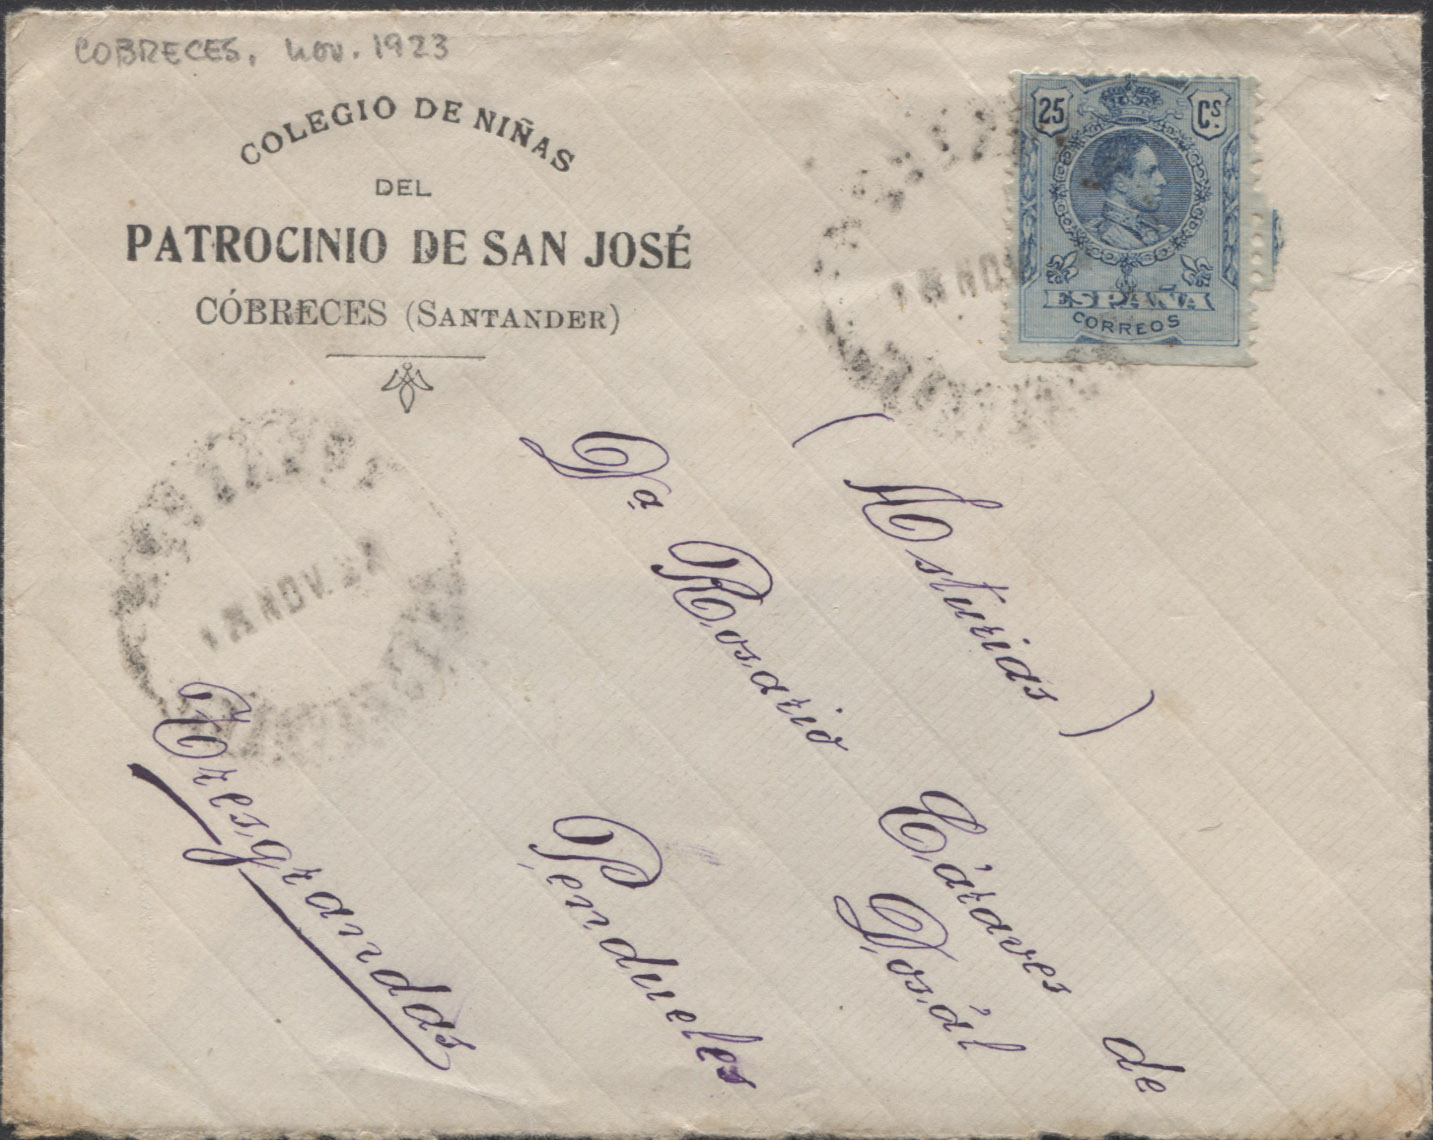 COBRECES, nov. 1923
COLEGIO DE NIÑAS
DEL
PATROCINIO DE SAN JOSÉ
CÓBRECES (SANTANDER)
25 Cs.
ESPAÑA
CORREOS
NOV
NOV.
(Asturias)
Dª Rosario Cáraves de
Dosál
Pendueles
Tresgrandas